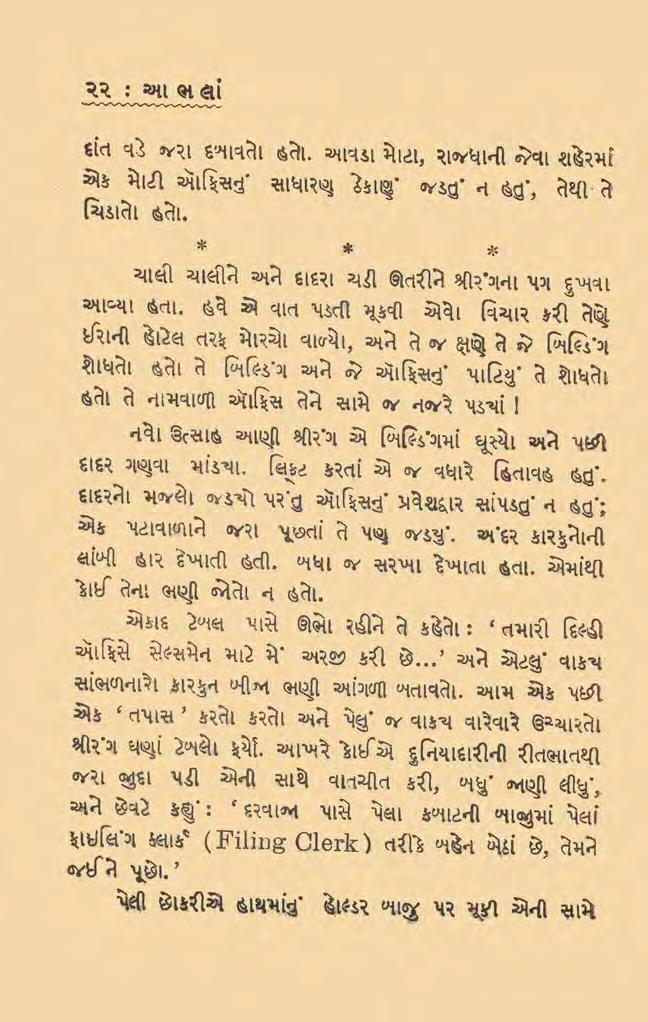 ૨૨ : આ ભ લાં
દાંત વડે જરા દબાવતો હતો. આવડા મોટા, રાજધાની જેવા શહેરમાં
એક મોટી ઑફિસનું સાધારણ ઠેકાણું જડતું ન હતું, તેથી તે
ચિડાતો હતો.
* * *
ચાલી ચાલીને અને દાદરા ચડી ઊતરીને શ્રીરંગના પગ દુખવા
આવ્યા હતા. હવે એ વાત પડતી મૂકવી એવો વિચાર કરી તેણે
ઈરાની હોટેલ તરફ મોરચો વાળ્યો, અને તે જ ક્ષણે તે જે બિલ્ડિંગ
શોધતો હતો તે બિલ્ડિંગ અને જે ઑફિસનું પાટિયું તે શોધતો
હતો તે નામવાળી ઑફિસ તેને સામે જ નજરે પડયાં !
નવો ઉત્સાહ આણી શ્રીરંગ એ બિલ્ડિંગમાં ઘૂસ્યો અને પછી
દાદર ગણવા માંડયા. લિફ્ટ કરતાં એ જ વધારે હિતાવહ હતું.
દાદરનો મજલો જડયો પરંતુ ઑફિસનું પ્રવેશદ્વાર સાંપડતું ન હતું;
એક પટાવાળાને જરા પૂછતાં તે પણ જડયું. અંદર કારકુનોની
લાંબી હાર દેખાતી હતી. બધા જ સરખા દેખાતા હતા. એમાંથી
કોઈ તેના ભણી જોતો ન હતો.
એકાદ ટેબલ પાસે ઊભો રહીને તે કહેતો : ‘ તમારી દિલ્હી
ઑફિસે સેલ્સમેન માટે મેં અરજી કરી છે...’ અને એટલું વાકય
સાંભળનારો કારકુન બીજા ભણી આંગળી બતાવતો. આમ એક પછી
એક ‘ તપાસ ’ કરતો કરતો અને પેલું જ વાકય વારેવારે ઉચ્ચારતો
શ્રીરંગ ઘણાં ટેબલો ફર્યો. આખરે કોઈએ દુનિયાદારીની રીતભાતથી
જરા જુદા પડી એની સાથે વાતચીત કરી, બધું જાણી લીધું,
અને છેવટે કહ્યું : ‘ દરવાજા પાસે પેલા કબાટની બાજુમાં પેલાં
ફાઇલિંગ ક્લાર્ક (Filing Clerk) તરીકે બહેન બેઠાં છે, તેમને
જઈને પૂછો.’
પેલી છોકરીએ હાથમાંનું હોલ્ડર બાજુ પર મૂકી એની સામે